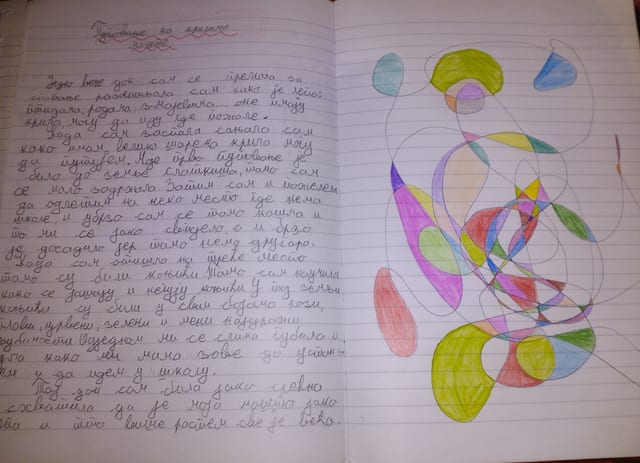 Путовање на крилима
маште
Једно вече док сам се спремала за
спавање размишљала сам како је лепо
птицама, родама, змајевима... оне имају
крила, могу да иду где пожеле.
Када сам заспала сањала сам
како имам велика шарена крила могу
да путујем. Моје прво путовање је
било до земље слаткиша, тамо сам
се мало задржала. Затим сам пожелела
да одлетим на неко место где нема
школе и убрзо сам се тамо нашла и
то ми се јако свидело, а и брзо
је досадило јер тамо нема другара.
Када сам отишла на треће место
тамо су били коњићи. Тамо сам научила
како се јашу и негују коњићи. У тој земљи
коњићи су били у свим бојама рози,
плави, црвени, зелени и мени најдражи
љубичасти. Одједном ми се слика губила и
чула како ми мама зове да устанем
и да идем у школу.
Тај дан сам била јако срећна
схватила да је моја машта јако
и што више растем све је већа.